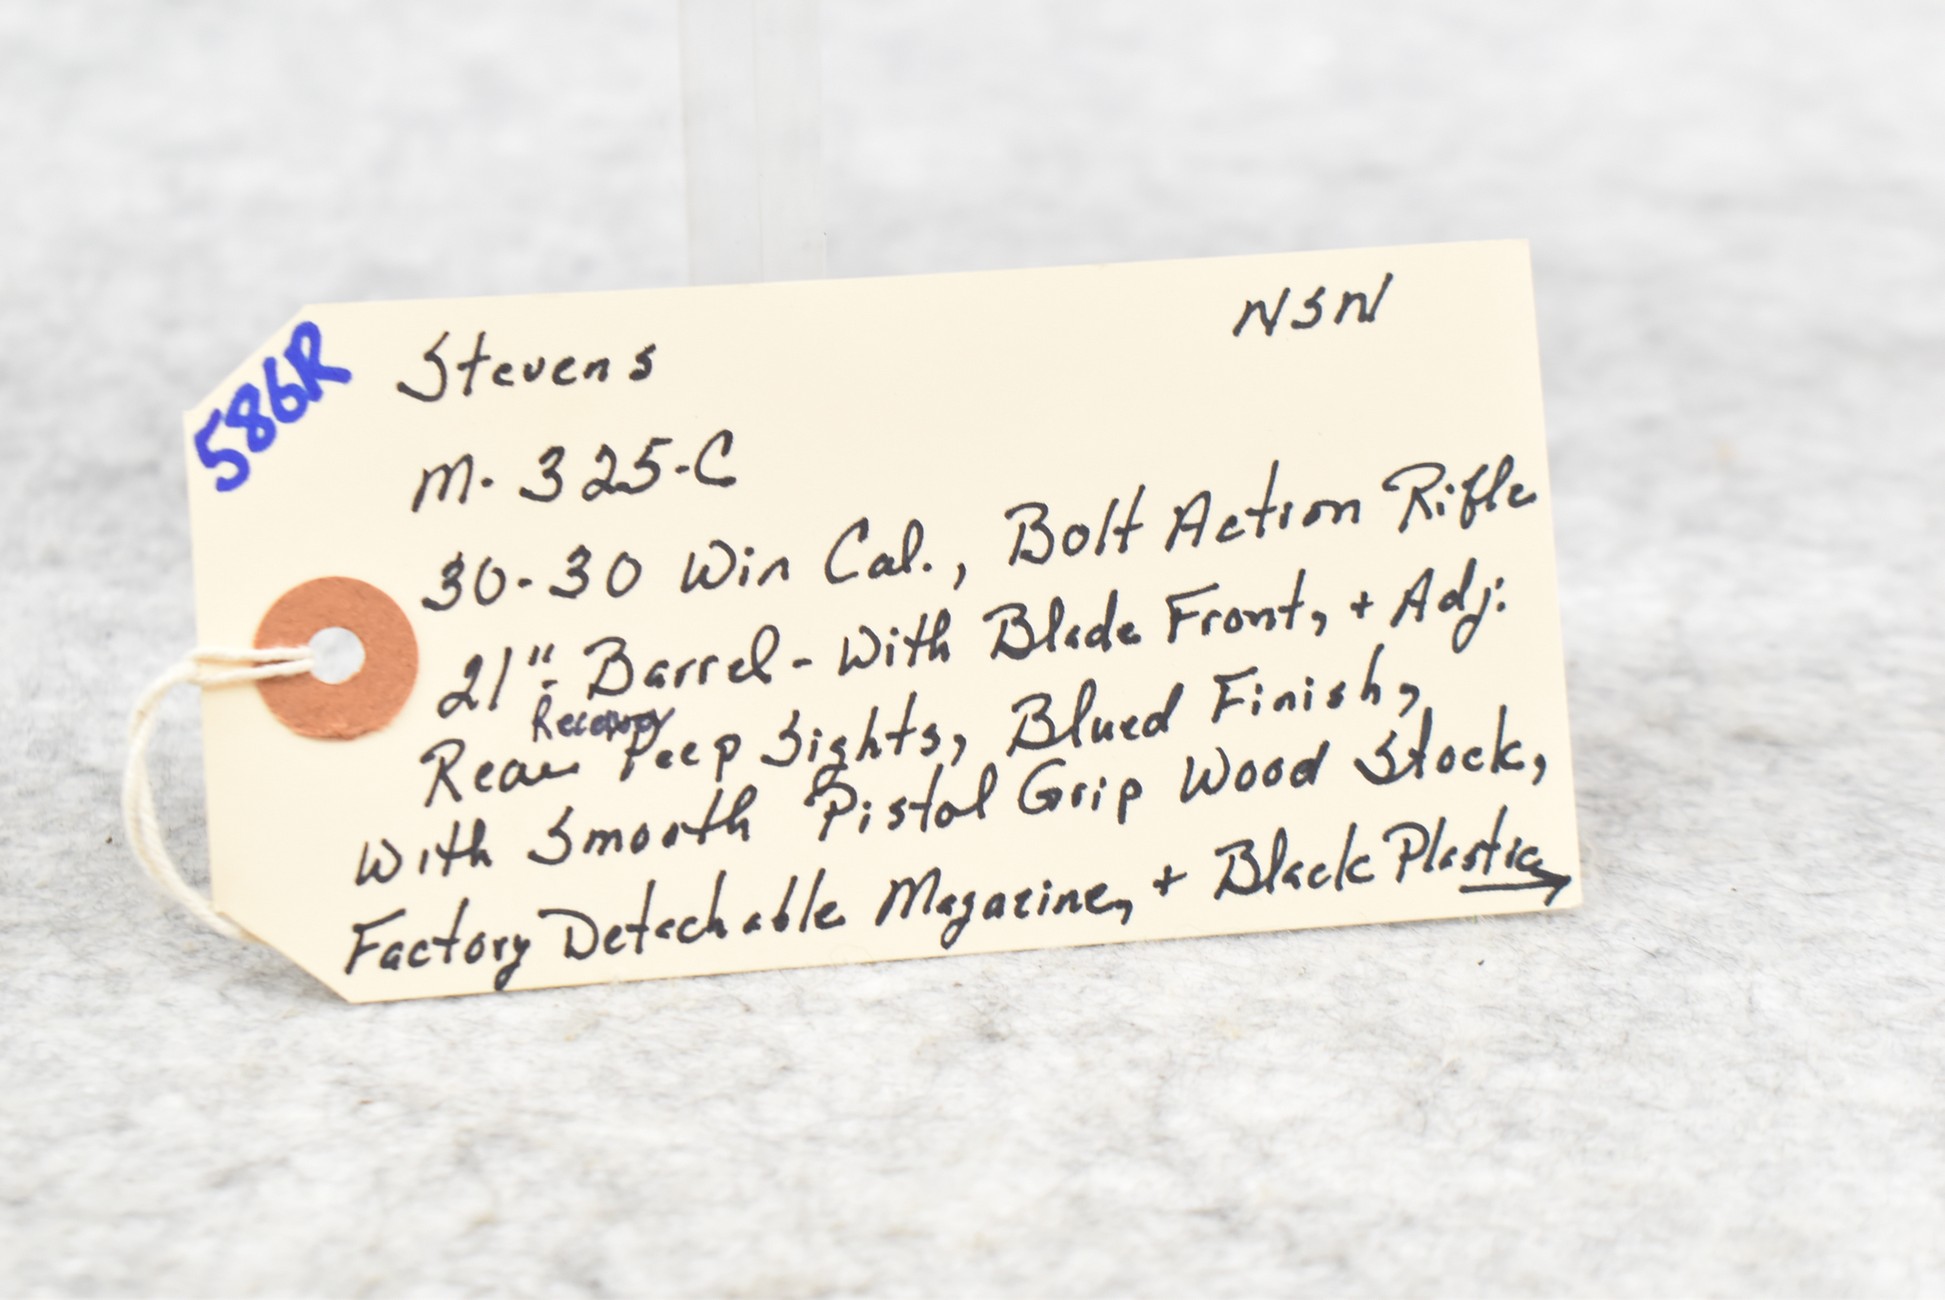 586R
Stevens NSN
M-325-C
30-30 Win Cal., Bolt Action Rifle
21" - Barrel - With Blade Front, + Adj:
Rear Peep Sights, Blued Finish,
With Smooth Pistol Grip Wood Stock,
Factory Detachable Magazine, + Black Plastic